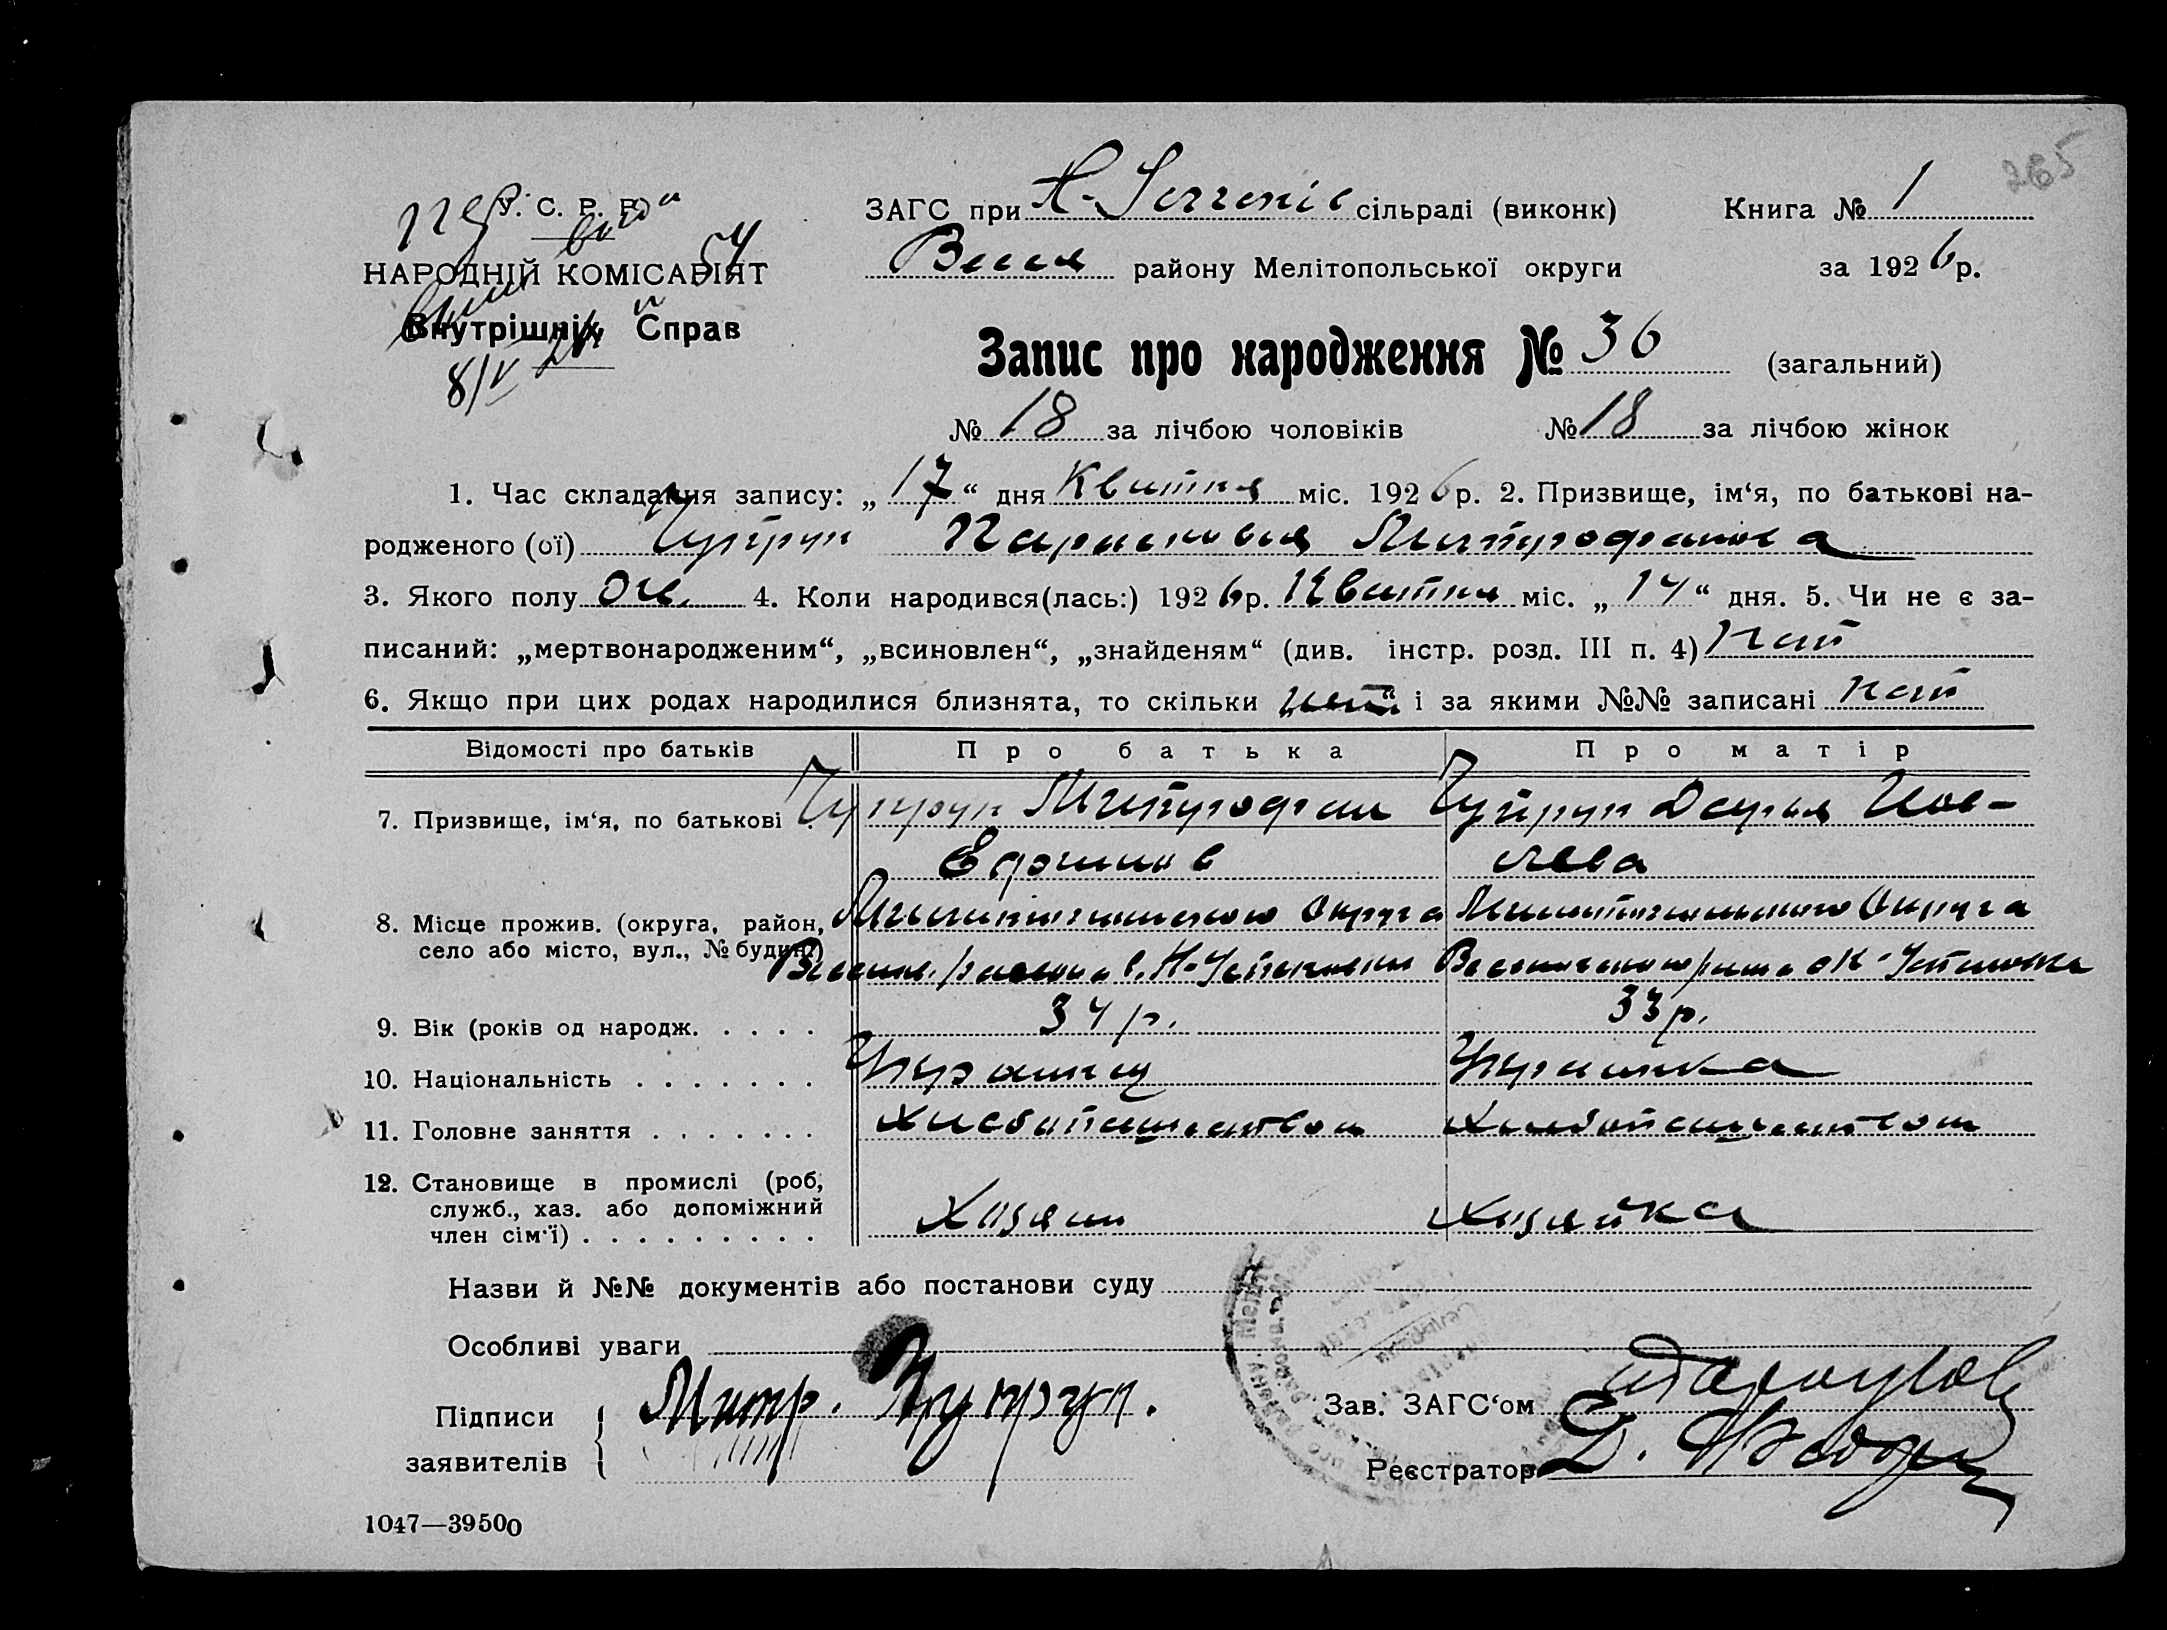 265
У. С. Р. Р.
НАРОДНІЙ КОМІСАРІЯТ
Внутрішніх Справ
54
8/V 26
ЗАГС при сільраді (виконк) Книга № 1
Весел району Мелітопольської округи за 1926 р.
Запис про народження № 36 (загальний)
№ 18 за лічбою чоловіків № 18 за лічбою жінок
1. Час складання запису: „17“ дня Квитня міс. 1926 р. 2. Призвище, ім‘я, по батькові на-
родженого (ої) Чупрун Парасковия Митрофанова
3. Якого полу 4. Коли народився(лась:) 1926 р. Квитня міс. „14“ дня. 5. Чи не є за-
писаний: „мертвонародженим“, „всиновлен“, „знайденям“ (див. інстр. розд. III п. 4) нет
6. Якщо при цих родах народилися близнята, то скільки нет і за якими №№ записані нет
Відомості про батьків Про батька Про матір
7. Призвище, ім‘я, по батькові . Чупрун Митрофан Чупрун Дарья Иов-
Ефимов лева
8. Місце прожив. (округа, район, Мелитопольского Округа Мелитопольского Округа
село або місто, вул., № будин.)
9. Вік (років од народж. . . . . 34 р. 33 р.
10. Національність . . . . . . . Украинец Украинка
11. Головне заняття . . . . . . . Хлебопашеством Хлебопашеством
12. Становище в промислі (роб,
служб., хаз. або допоміжний
член сім‘ї) . . . . . . . . . . Хозяин хозяйка
Назви й №№ документів або постанови суду
Особливі уваги
Підписи Митр. Чупрун. Зав. ЗАГС‘ом
заявителів Реєстратор
1047—39500